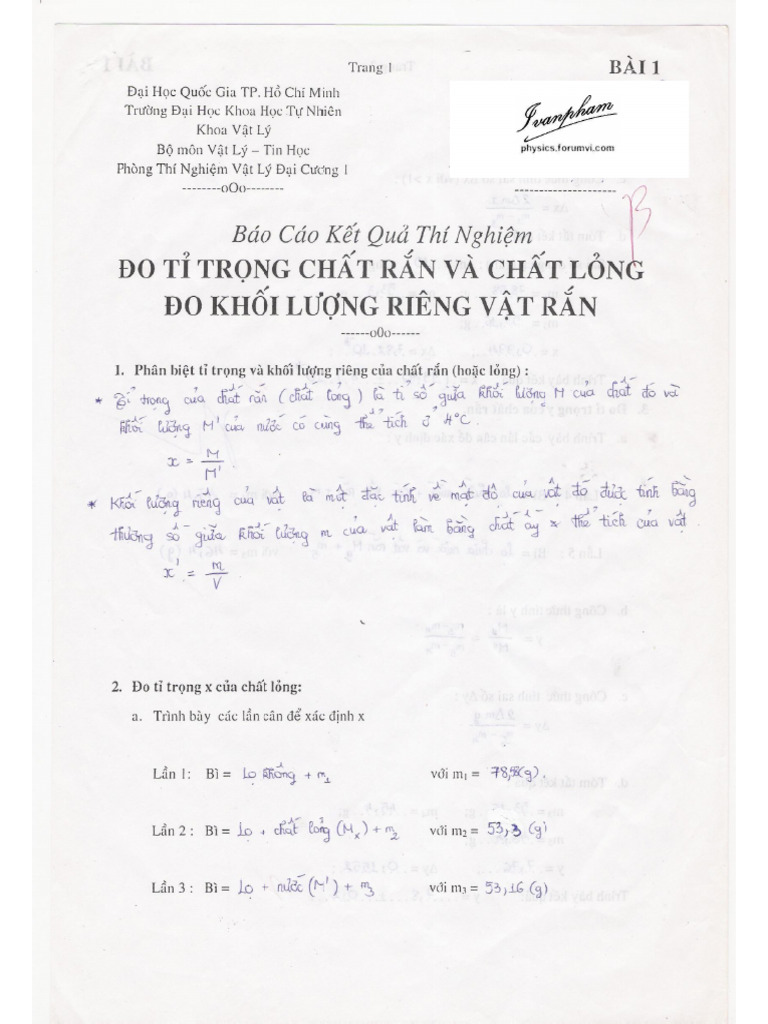 Trang 1
BÀI 1
Đại Học Quốc Gia TP. Hồ Chí Minh
Trường Đại Học Khoa Học Tự Nhiên
Khoa Vật Lý
Bộ môn Vật Lý – Tin Học
Phòng Thí Nghiệm Vật Lý Đại Cương 1
--------oOo--------
Ivanpham
physics.forumvi.com
--------------------
B
Báo Cáo Kết Quả Thí Nghiệm
ĐO TỈ TRỌNG CHẤT RẮN VÀ CHẤT LỎNG
ĐO KHỐI LƯỢNG RIÊNG VẬT RẮN
------o0o------
1. Phân biệt tỉ trọng và khối lượng riêng của chất rắn (hoặc lỏng) :
* Tỉ trọng của chất rắn (chất lỏng) là tỉ số giữa khối lượng M của chất đó và
khối lượng M' của nước có cùng thể tích ở 4°C.
x = M/M'
* Khối lượng riêng của vật là một đặc tính về mật độ của vật đó được tính bằng
thương số giữa khối lượng m của vật làm bằng chất ấy x thể tích của vật.
x' = m/V
2. Đo tỉ trọng x của chất lỏng:
a. Trình bày các lần cân để xác định x
Lần 1: Bì = Lọ không + m₁ với m₁ = (g).
Lần 2 : Bì = Lọ + chất lỏng (Mₓ) + m₂ với m₂ = 53,3 (g)
Lần 3 : Bì = Lọ + nước (M') + m₃ với m₃ = 53,16 (g)